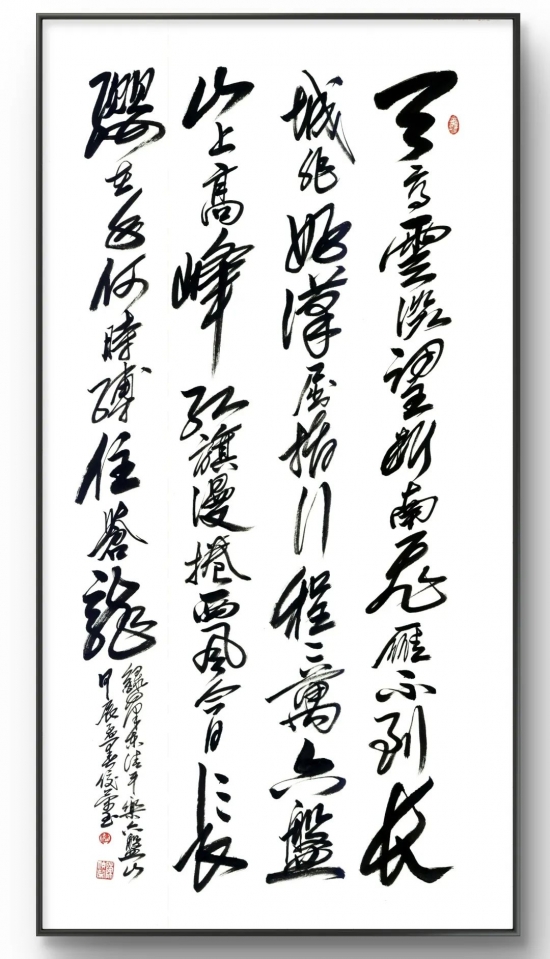 天高雲淡望断南飛雁不到長
城非好漢屈指行程二萬六盤
山上高峰紅旗漫捲西風今日長
纓在手何時縛住蒼龍
錄毛澤東清平樂六盤山
甲辰孟春